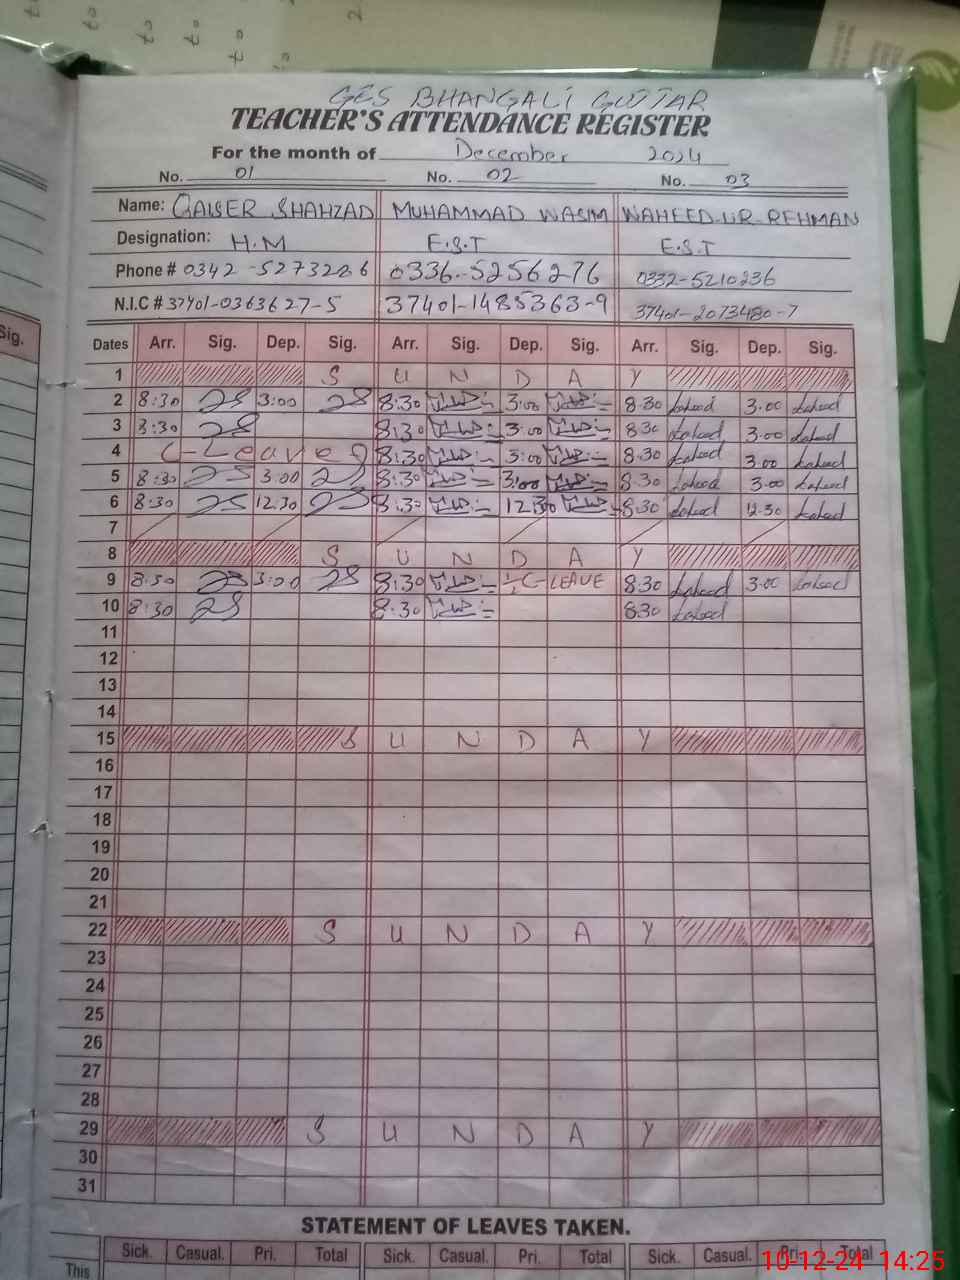 GES BHANGALI GUJJAR
TEACHER'S ATTENDANCE REGISTER
For the month of December 2024
No. 01 No. 02 No. 03
Name: QAISER SHAHZAD MUHAMMAD WASIM WAHEED-UR-REHMAN
Designation: H.M E.S.T E.S.T
Phone # 0342-5273286 0336-5256276 0332-5210236
N.I.C # 37401-0363627-5 37401-1485363-9 37401-2073480-7
Sig.
Dates Arr. Sig. Dep. Sig. Arr. Sig. Dep. Sig. Arr. Sig. Dep. Sig.
1 S U N D A Y
2 8:30 3:00 8:30 3:00 8.30 3.00
3 8:30 8:30 3:00 8.30 3.00
4 C-Leave 8:30 3:00 8.30 3.00
5 8:30 3:00 8:30 3:00 8.30 3.00
6 8:30 12.30 8:30 12.30 8.30 12.30
7
8 S U N D A Y
9 8:30 3:00 8:30 ½ C-LEAVE 8.30 3.00
10 8:30 8:30 8.30
11
12
13
14
15 S U N D A Y
16
17
18
19
20
21
22 S U N D A Y
23
24
25
26
27
28
29 S U N D A Y
30
31
STATEMENT OF LEAVES TAKEN.
Sick. Casual. Pri. Total Sick. Casual. Pri. Total Sick. Casual. Pri. Total
This
10-12-24 14:25